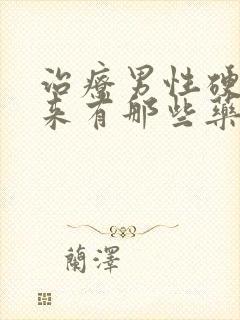 治療男性硬
来有那些藥
蘭澤